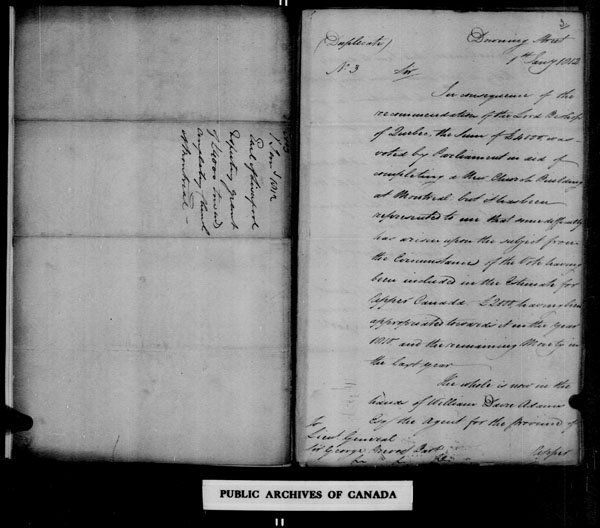 1 Jany 1812
Earl of Liverpool
grant
of £4000 towards
Church
at Montreal
3
(Duplicate)
Downing Street
1st Jany 1812
No 3
Sir
In consequence of the
recommendation of the Lord Bishop
of Quebec, the Sum of £4000 was
voted by Parliament in aid of
completing a New Church Building
at Montreal but it has been
represented to me that some difficulty
has arisen upon the subject from
the Circumstance of the Vote having
been included in the Estimate for
Upper Canada £2000 having been
appropriated towards it in the year
1810 and the remaining Moiety in
the last year
The whole is now in the
hands of William Dacre Adams
Esq the Agent for the province of
Upper
To
Lieut General
Sir George Prevost Bart
PUBLIC ARCHIVES OF CANADA